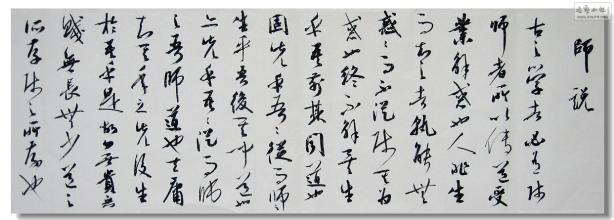 師說
古之學者必有師
師者所以傳道受
業解惑也人非生
而知之者孰能無
惑〻而不從師其為
惑也終不解矣生
乎吾前其聞道也
固先乎吾〻從而師之
生乎吾後其聞道也
亦先乎吾〻從而師
之吾師道也夫庸
知其年之先後生
於吾乎是故無貴無
賤無長無少道之
所存師之所存也